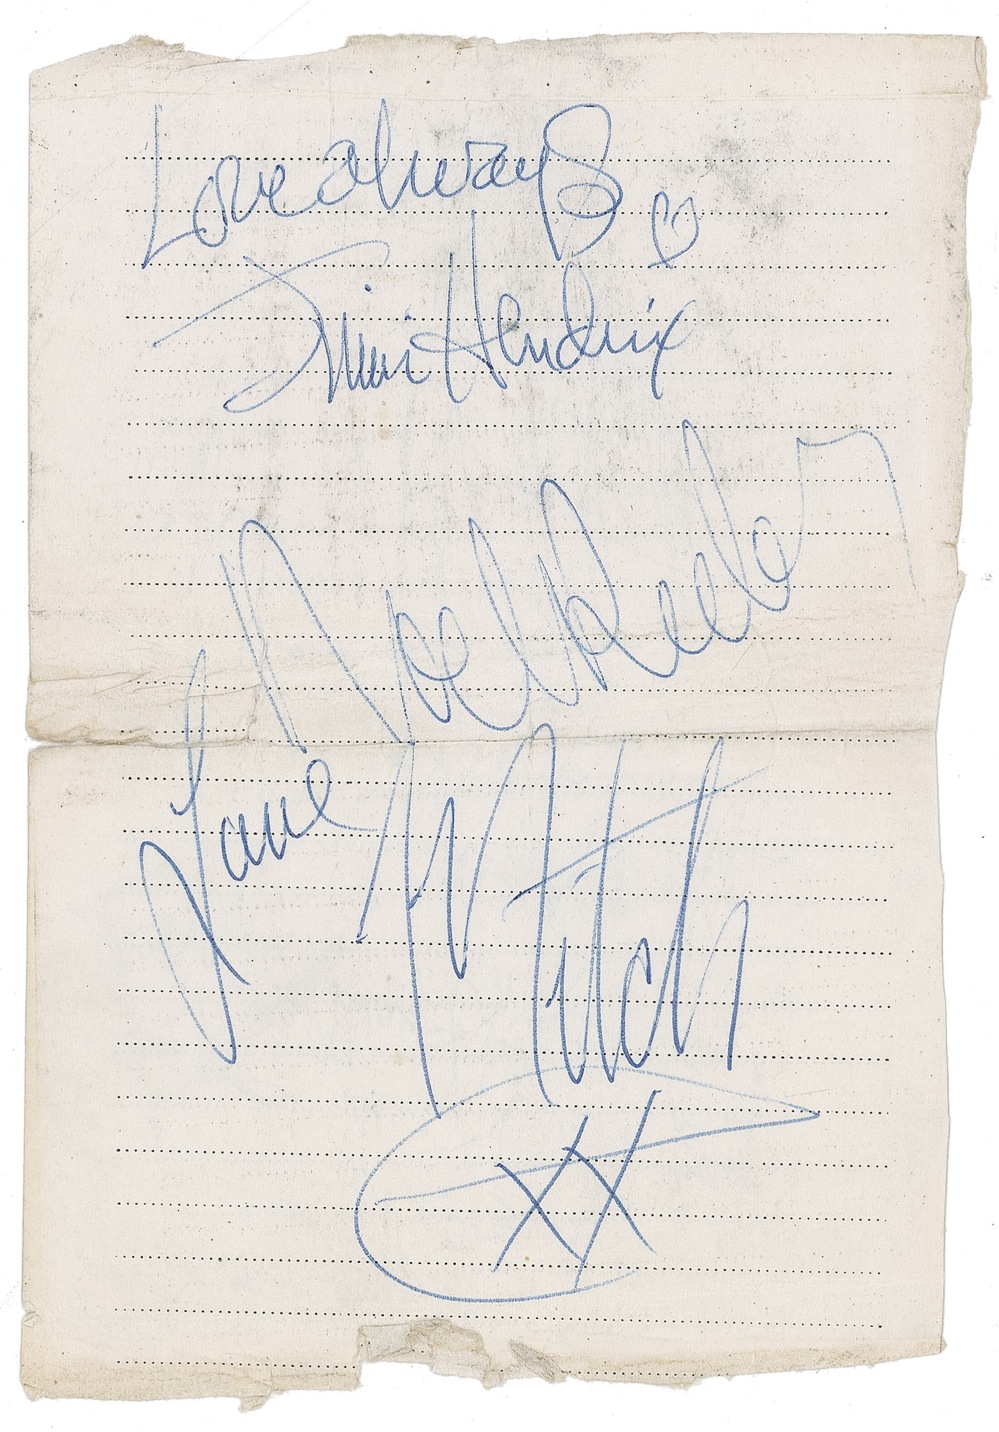 Love always
Jimi Hendrix
Noel Redding
Love Mitch
XX